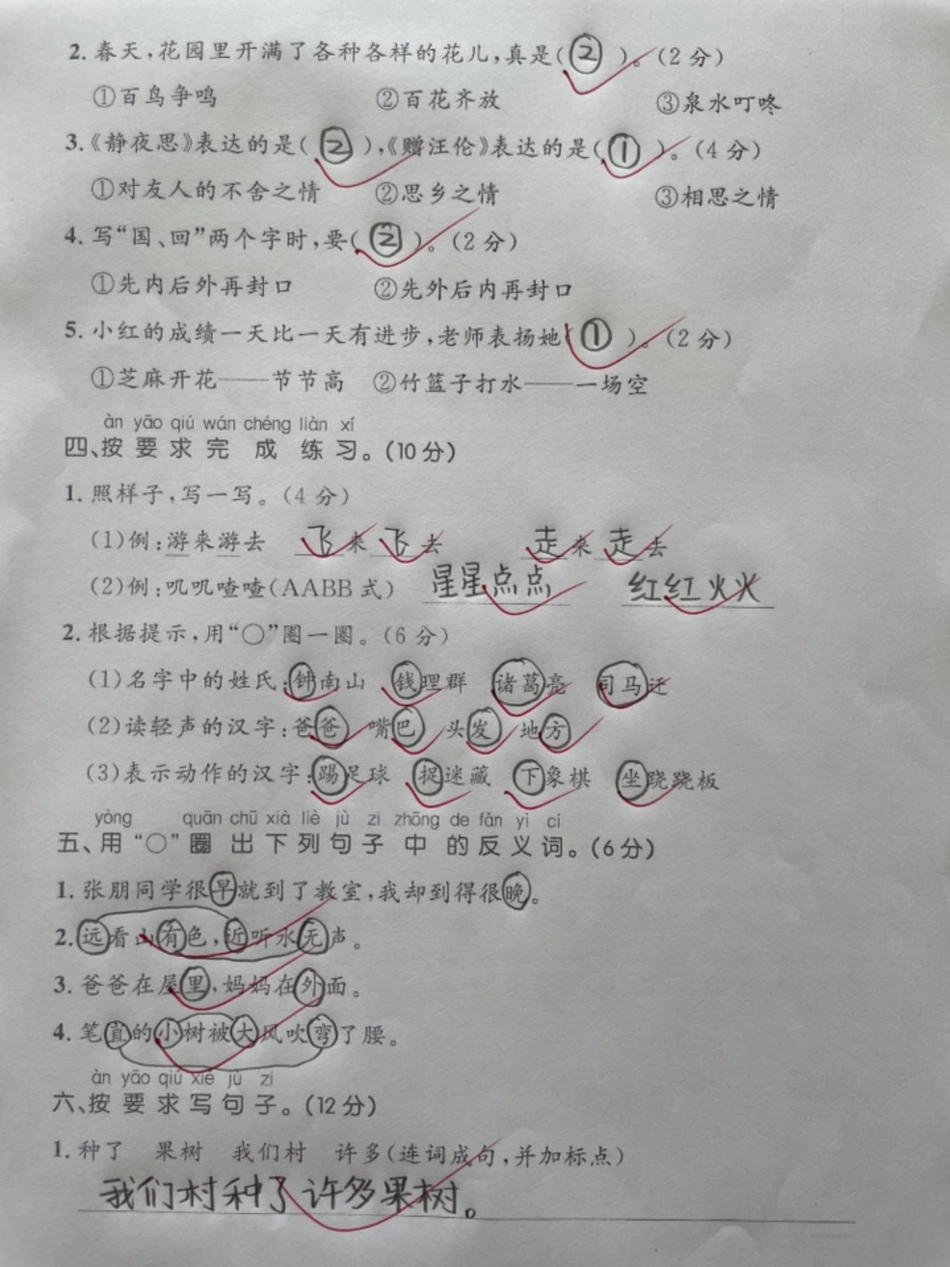 2.春天,花园里开满了各种各样的花儿,真是(②)。(2分)
①百鸟争鸣 ②百花齐放 ③泉水叮咚
3.《静夜思》表达的是(②),《赠汪伦》表达的是(①)。(4分)
①对友人的不舍之情 ②思乡之情 ③相思之情
4.写“国、回”两个字时,要(②)。(2分)
①先内后外再封口 ②先外后内再封口
5.小红的成绩一天比一天有进步,老师表扬她(①)。(2分)
①芝麻开花——节节高 ②竹篮子打水——一场空
àn yāo qiú wán chéng liàn xí
四、按要求完成练习。(10分)
1.照样子,写一写。(4分)
(1)例:游来游去 飞来飞去 走来走去
(2)例:叽叽喳喳(AABB式) 星星点点 红红火火
2.根据提示,用“○”圈一圈。(6分)
(1)名字中的姓氏:钟南山 钱理群 诸葛亮 司马迁
(2)读轻声的汉字:爸爸 嘴巴 头发 地方
(3)表示动作的汉字:踢足球 捉迷藏 下象棋 坐跷跷板
yòng quān chū xià liè jù zi zhōng de fǎn yì cí
五、用“○”圈出下列句子中的反义词。(6分)
1.张朋同学很早就到了教室,我却到得很晚。
2.远看山有色,近听水无声。
3.爸爸在屋里,妈妈在外面。
4.笔直的小树被大风吹弯了腰。
àn yāo qiú xiě jù zi
六、按要求写句子。(12分)
1.种了 果树 我们村 许多(连词成句,并加标点)
我们村种了许多果树。